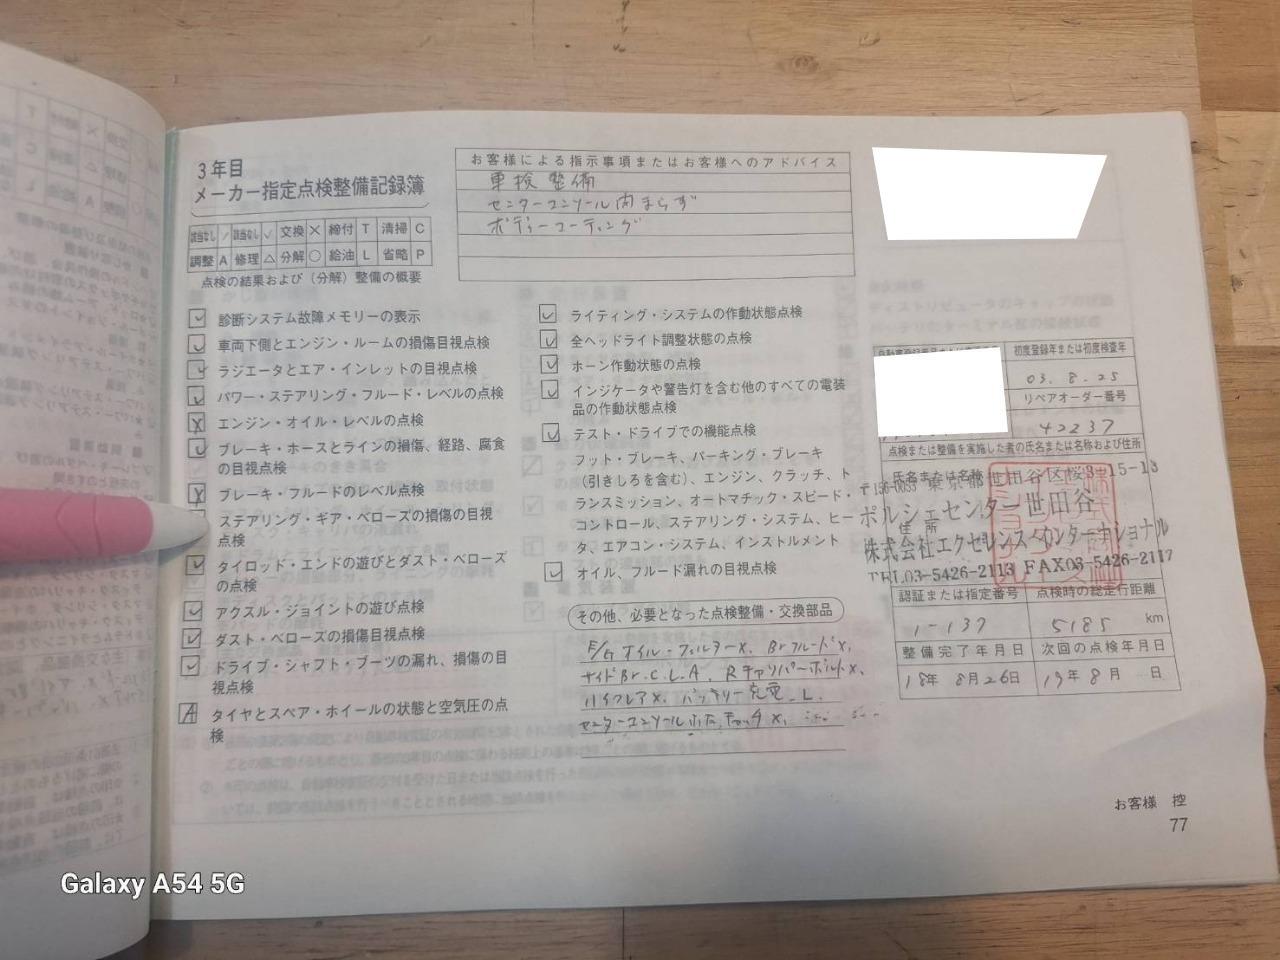 3年目
メーカー指定点検整備記録簿
該当なし / 該当なし ✓ 交換 × 締付 T 清掃 C
調整 A 修理 △ 分解 ○ 給油 L 省略 P
点検の結果および（分解）整備の概要
お客様による指示事項またはお客様へのアドバイス
車検整備
センターコンソール内まらず
ボディーコーティング
診断システム故障メモリーの表示
車両下側とエンジン・ルームの損傷目視点検
ラジエータとエア・インレットの目視点検
パワー・ステアリング・フルード・レベルの点検
エンジン・オイル・レベルの点検
ブレーキ・ホースとラインの損傷、経路、腐食
の目視点検
ブレーキ・フルードのレベル点検
ステアリング・ギア・ベローズの損傷の目視
点検
タイロッド・エンドの遊びとダスト・ベローズ
の点検
アクスル・ジョイントの遊び点検
ダスト・ベローズの損傷目視点検
ドライブ・シャフト・ブーツの漏れ、損傷の目
視点検
タイヤとスペア・ホイールの状態と空気圧の点
検
ライティング・システムの作動状態点検
全ヘッドライト調整状態の点検
ホーン作動状態の点検
インジケータや警告灯を含む他のすべての電装
品の作動状態点検
テスト・ドライブでの機能点検
フット・ブレーキ、パーキング・ブレーキ
（引きしろを含む）、エンジン、クラッチ、ト
ランスミッション、オートマチック・スピード・
コントロール、ステアリング・システム、ヒー
タ、エアコン・システム、インストルメント
オイル、フルード漏れの目視点検
その他、必要となった点検整備・交換部品
E/G オイル・フィルター×、Brフルード×、
サイドBr.C.L.A. Rキャリパーボルト×、
ハイフレア×、バッテリー充電、L.
センターコンソール
初度登録年または初度検査年
03. 8. 25
リペアオーダー番号
42237
点検または整備を実施した者の氏名または名称および住所
氏名または名称
住所
東京都世田谷区桜3-15-13
ポルシェセンター世田谷
株式会社エクセレンス・インターナショナル
TEL03-5426-2113 FAX03-5426-2117
認証または指定番号 点検時の総走行距離
1-137 5185 km
整備完了年月日 次回の点検年月日
18年 8月26日 19年 8月 日
お客様 控
77
Galaxy A54 5G